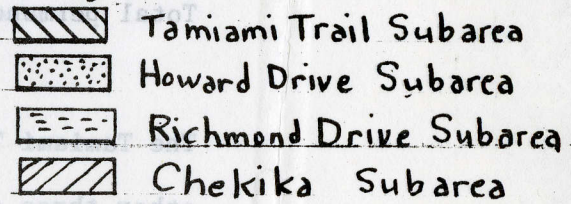 Tamiami Trail Subarea
Howard Drive Subarea
Richmond Drive Subarea
Chekika Subarea